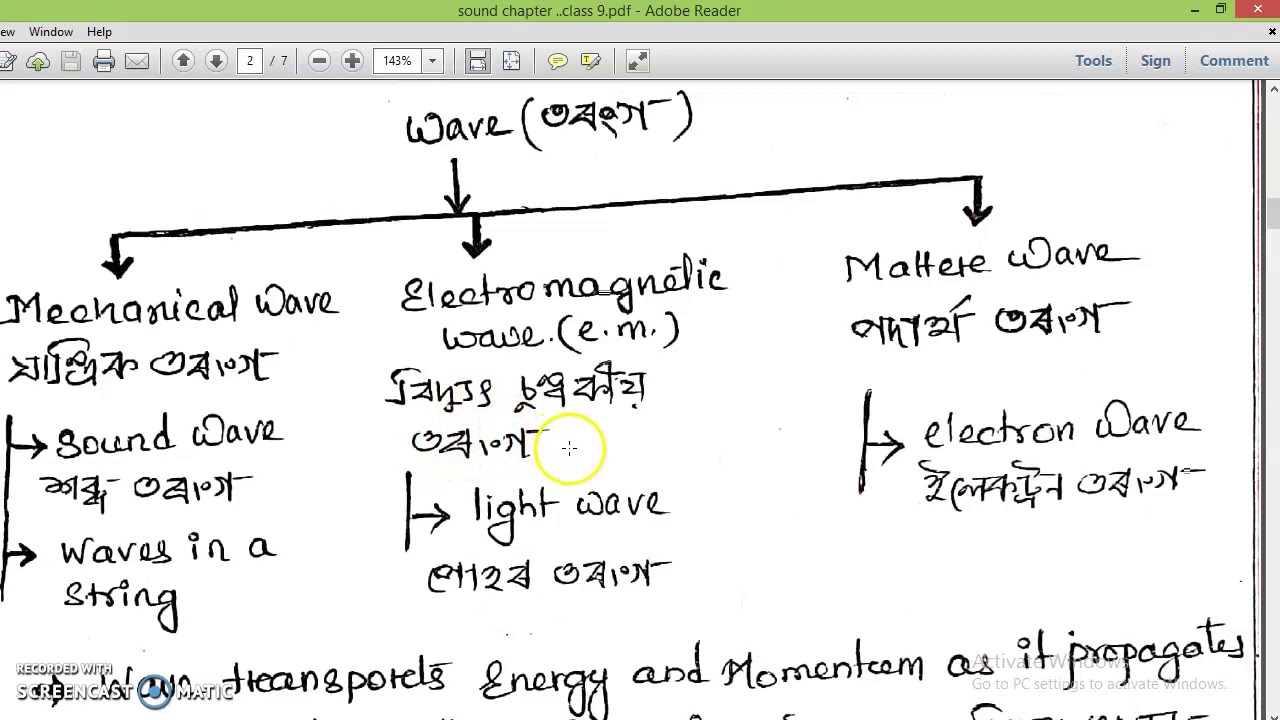 sound chapter ..class 9.pdf - Adobe Reader
ew Window Help
2 / 7 143% Tools Sign Comment
Wave (তৰংগ)
Mechanical Wave
যান্ত্ৰিক তৰংগ
Sound Wave
শব্দ তৰংগ
Waves in a
String
Electromagnetic
wave. (e.m.)
বিদ্যুৎ চুম্বকীয়
তৰংগ
light wave
পোহৰ তৰংগ
Mattere Wave
পদাৰ্থ তৰংগ
electron Wave
ইলেকট্ৰন তৰংগ
Wave transports Energy and Momentum as it propagates.
Activate Windows
Go to PC settings to activate Windows.
RECORDED WITH
SCREENCAST MATIC